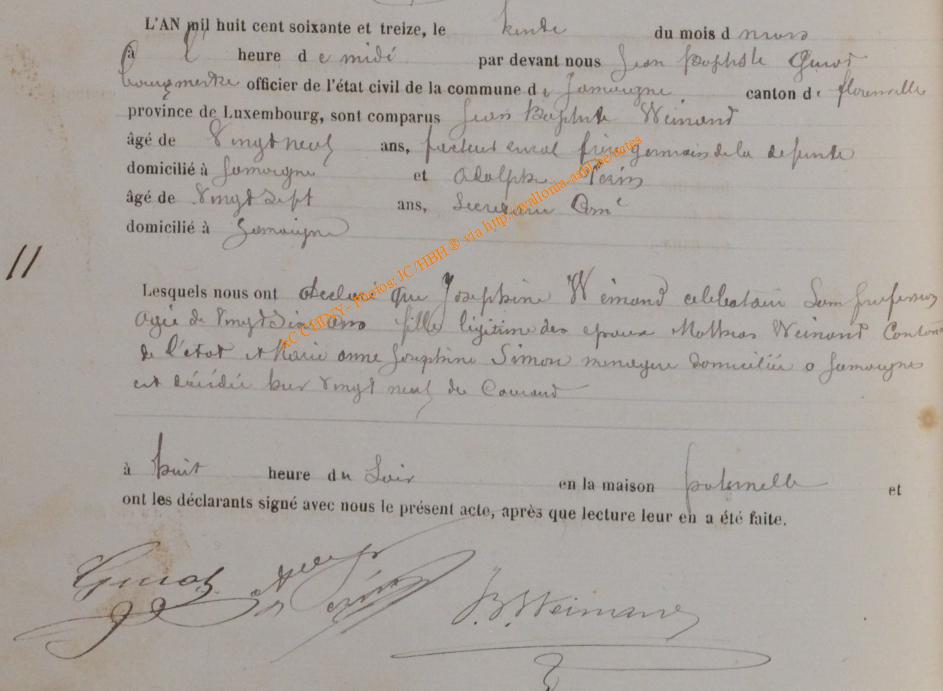 L'AN mil huit cent soixante et treize, le trente du mois d mars
à heure d e midi par devant nous Jean Baptiste Guiot
bourgmestre officier de l'état civil de la commune d e Jamoigne canton d e florenville
province de Luxembourg, sont comparus Jean Baptiste Weinand
âgé de Vingt neuf ans, facteur rural frère germain de la defunte
domicilié à Jamoigne et Adolphe Perin
âgé de Vingt sept ans, Secretaire Comˡ
domicilié à Jamoigne
11
Lesquels nous ont declaré que Josephine Weinand celibataire Sans profession
agée de Vingt Six ans fille légitime des epoux Mathias Weinand Canton
de l'état et Marie anne Josephine Simon menagere domiciliée a Jamoigne
est décédée hier Vingt neuf du Courant
à huit heure d u Soir en la maison paternelle et
ont les déclarants signé avec nous le présent acte, après que lecture leur en a été faite.
Guiot Perin J. B. Weinand
AC CHINY - Photos: JC/HBH ® via http://avalloma-asbl.be/sites